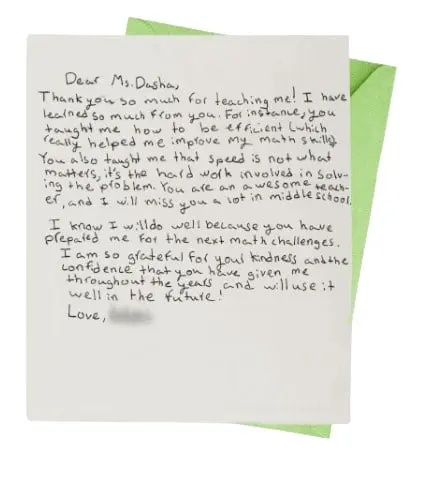 Dear Ms. Dasha,
Thank you so much for teaching me! I have
learned so much from you. For instance, you
taught me how to be efficient (which
really helped me improve my math skills)
You also taught me that speed is not what
matters, it's the hard work involved in solv-
ing the problem. You are an awesome teach-
er, and I will miss you a lot in middle school.
I know I will do well because you have
prepared me for the next math challenges.
I am so grateful for your kindness and the
confidence that you have given me
throughout the years and will use it
well in the future!
Love,